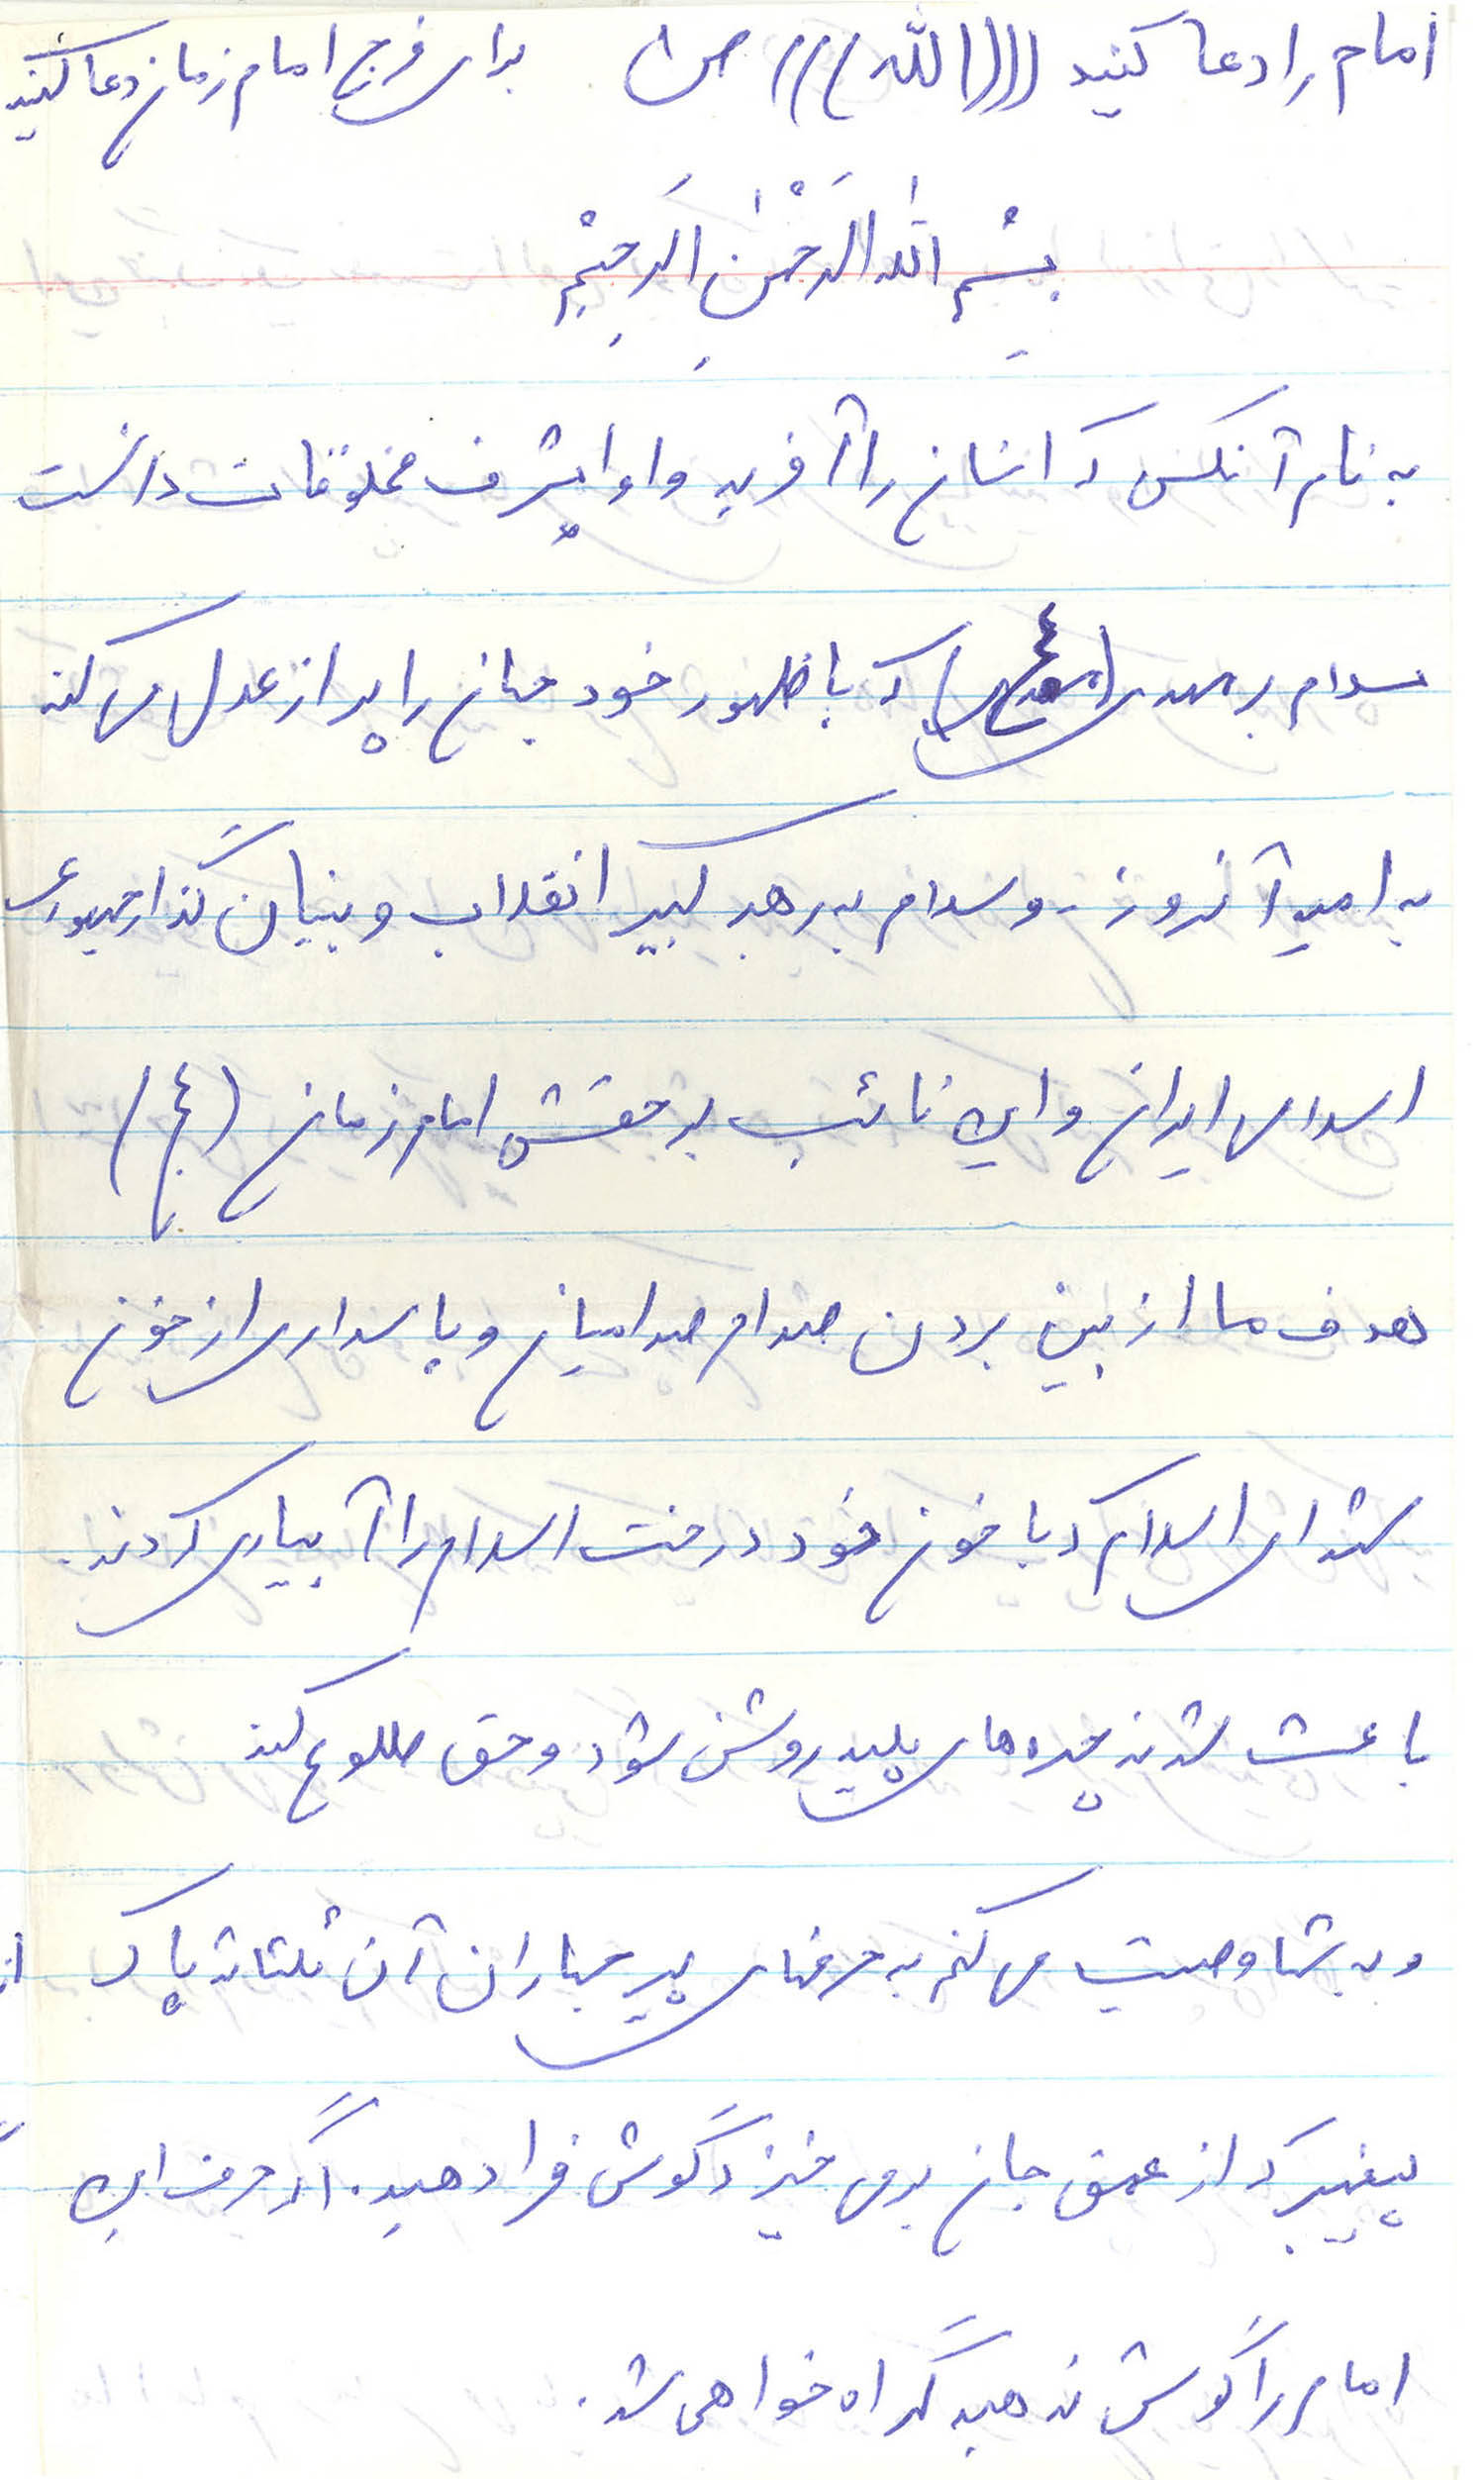 امام را دعا کنید ((((الله)))) ص۱ برای فرج امام زمان دعا کنید
بِسْمِ اللهِ الرَّحْمٰنِ الرَّحِیْمِ
به نام آنکس که انسان را آفرید و او اشرف مخلوقات دانست
سلام بر مهدی (عج) که با ظهور خود جهان را پر از عدل می کند
به امید آنروز - و سلام به رهبر کبیر انقلاب و بنیان گذار جمهوری
اسلامی ایران و این نائب بر حقش امام زمان (عج)
هدف ما از بین بردن صدام صدامیان و پاسداری از خون
شهدای اسلام که با خون خود درخت اسلام را آبیاری کردند.
باعث شدند چهره های پلید روشن شود و حق طلوع کند
و به شما وصیت می کنم به حرفهای پیر جماران آن
پیغمبر که از عمق جان بر می خیزد گوش فرا دهید. اگر حرف این
امام را گوش ندهید گمراه خواهی شد.